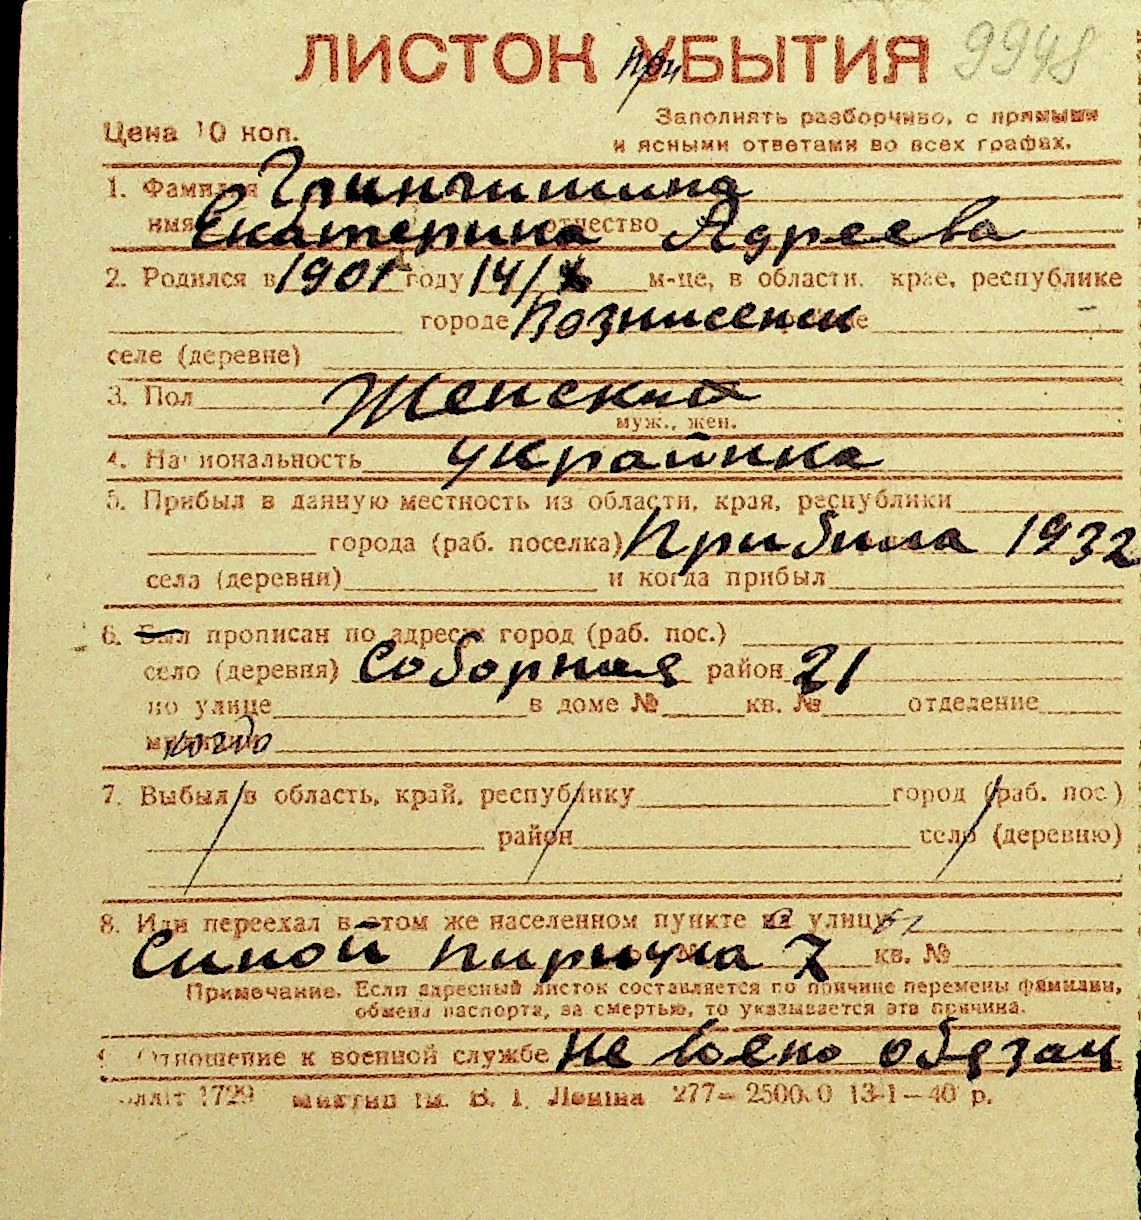 ЛИСТОК при УБЫТИЯ 9948
Цена 10 коп.
Заполнять разборчиво, с прямыми
и ясными ответами во всех графах.
1. Фамилия
имя Екатерина отчество Адреева
2. Родился в 1901 году 14/X м-це, в области, крае, республике
городе Вознисенск
селе (деревне)
3. Пол Женский
муж., жен.
4. Национальность украинка
5. Прибыл в данную местность из области, края, республики
города (раб. поселка) Прибила 1932
села (деревни) и когда прибыл
6. Был прописан по адресу: город (раб. пос.)
село (деревня) Соборная район 21
по улице в доме № кв. № отделение
милиции когда
7. Выбыл в область, край, республику город (раб. пос.)
район село (деревню)
8. Или переехал в этом же населенном пункте на улицу из
Синой 7 кв. №
Примечание. Если адресный листок составляется по причине перемены фамилии,
обмена паспорта, за смертью, то указывается эта причина.
9. Отношение к военной службе не воено обязан
1729 ім. В. І. Леніна 277—25000 13-1—40 р.